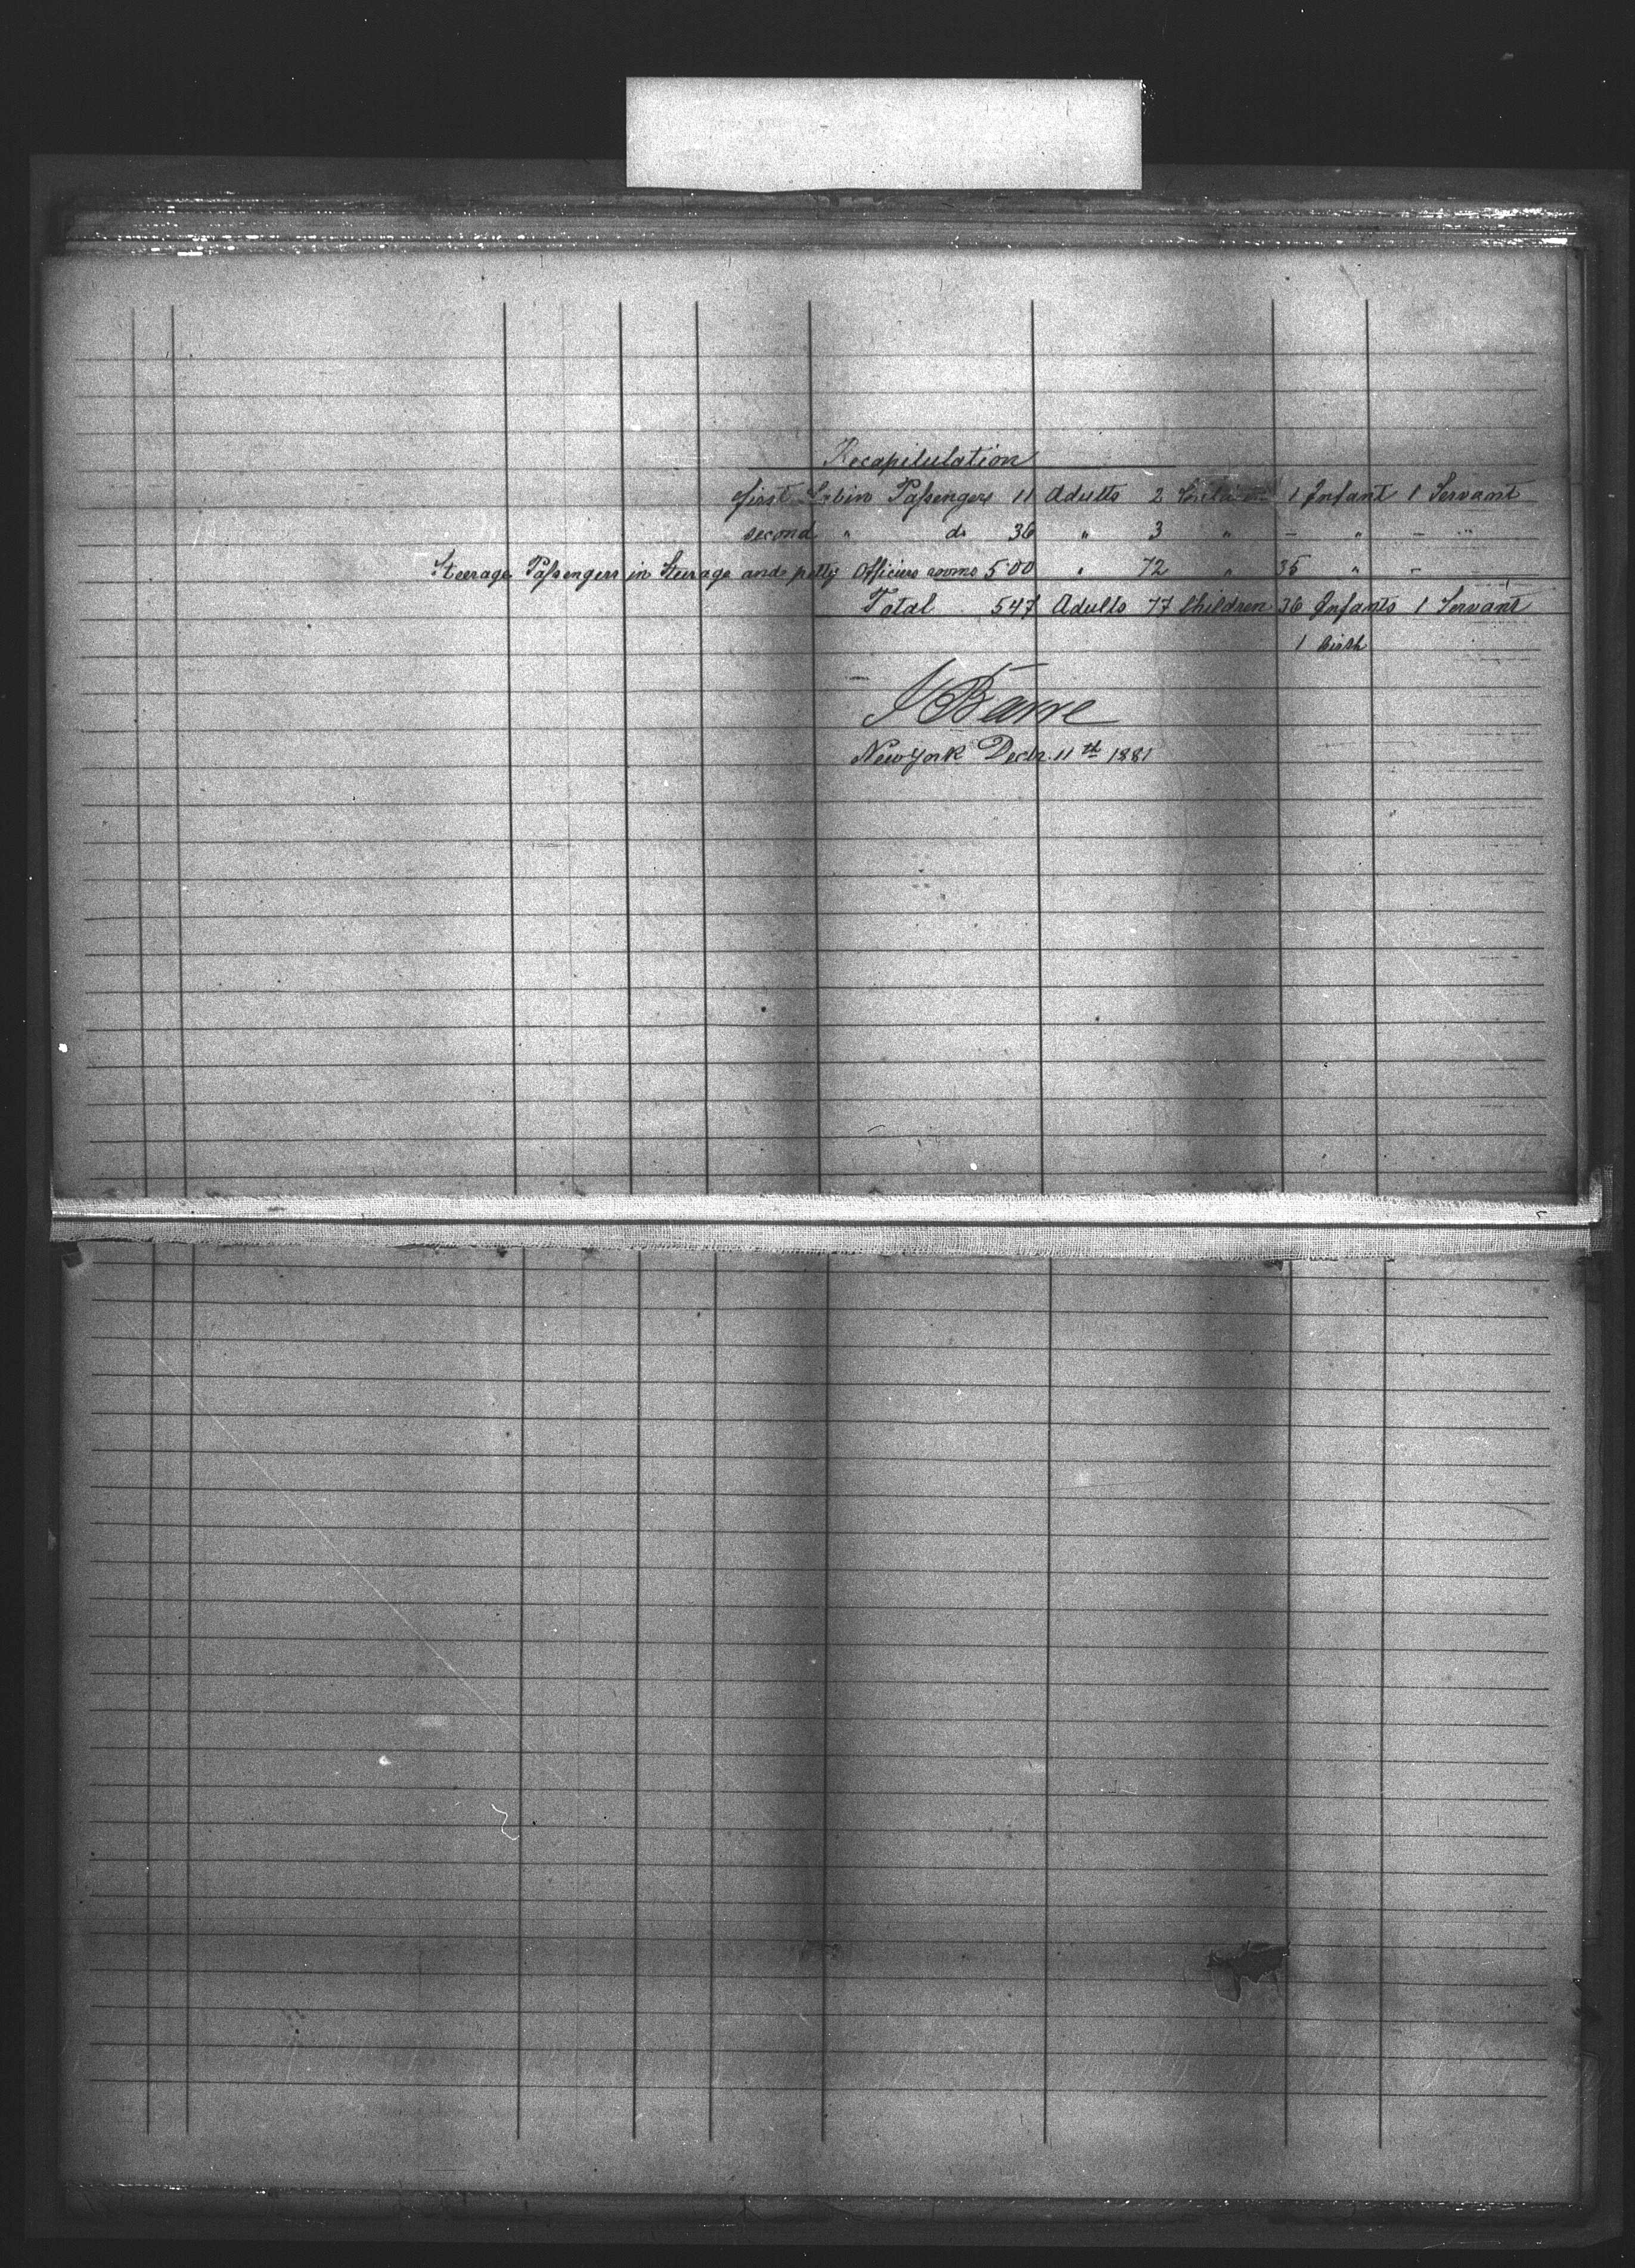 Recapitulation
first Cabin Passengers 11 Adults 2 Children 1 Infant 1 Servant
second " do 36 " 3 " - " - "
Steerage Passengers in Steerage and petty Officiers rooms 500 " 72 " 35 " -
Total 547 Adults 77 Children 36 Infants 1 Servant
1 birth
Barre
New York Decbr. 11th 1881